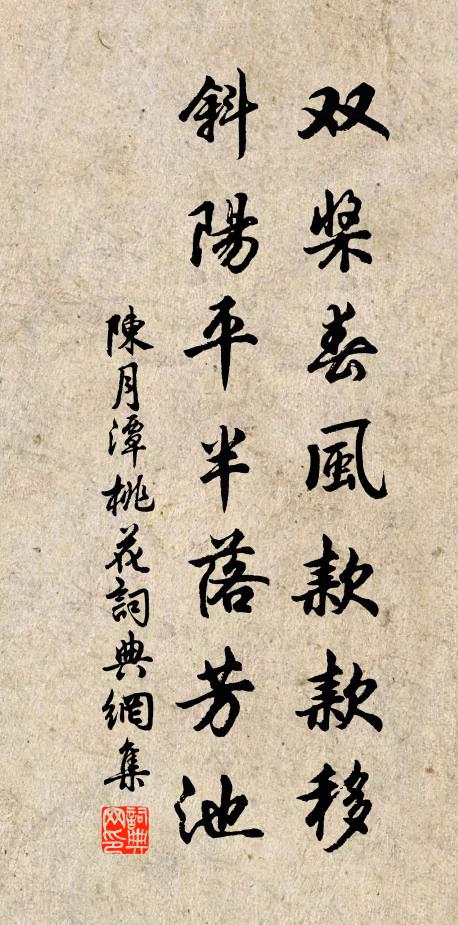 双桨春風款款移
斜陽平半落芳池
陳月潭桃花詞典網集
詞典網印